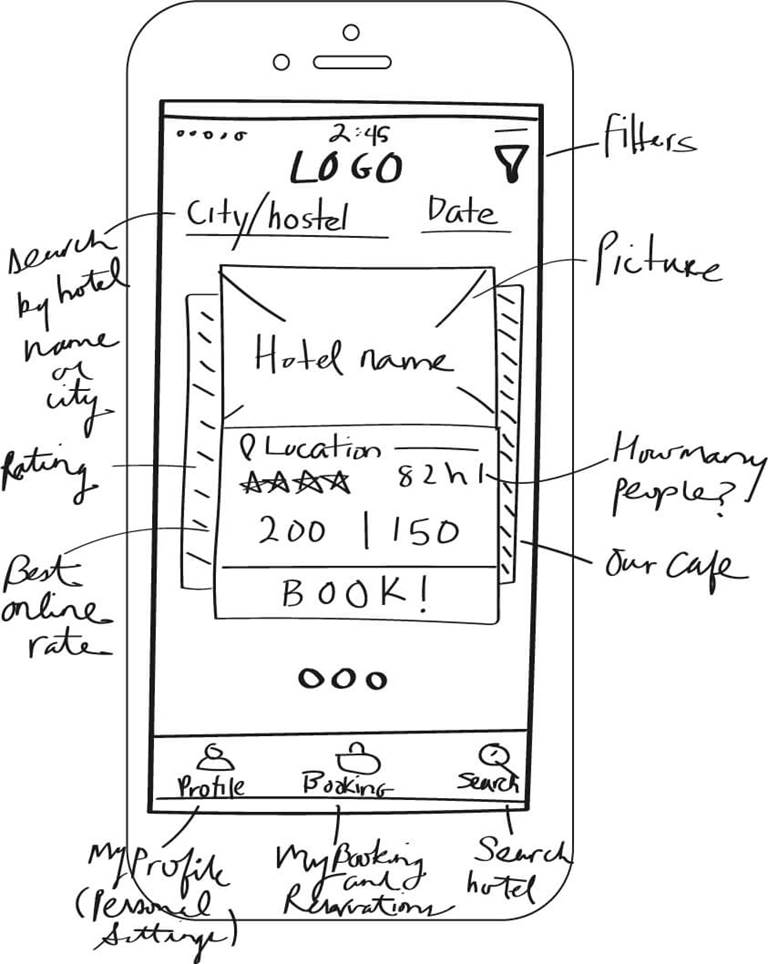 2:45
LOGO
Filters
City/hostel
Date
Search
by hotel
name
or
city
Picture
Hotel name
Location
82h1
How many
people?
Rating
200 | 150
Our Cafe
Best
online
rate
BOOK!
Profile
Booking
Search
My Profile
(Personal
Settings)
My Booking
and
Reservations
Search
hotel